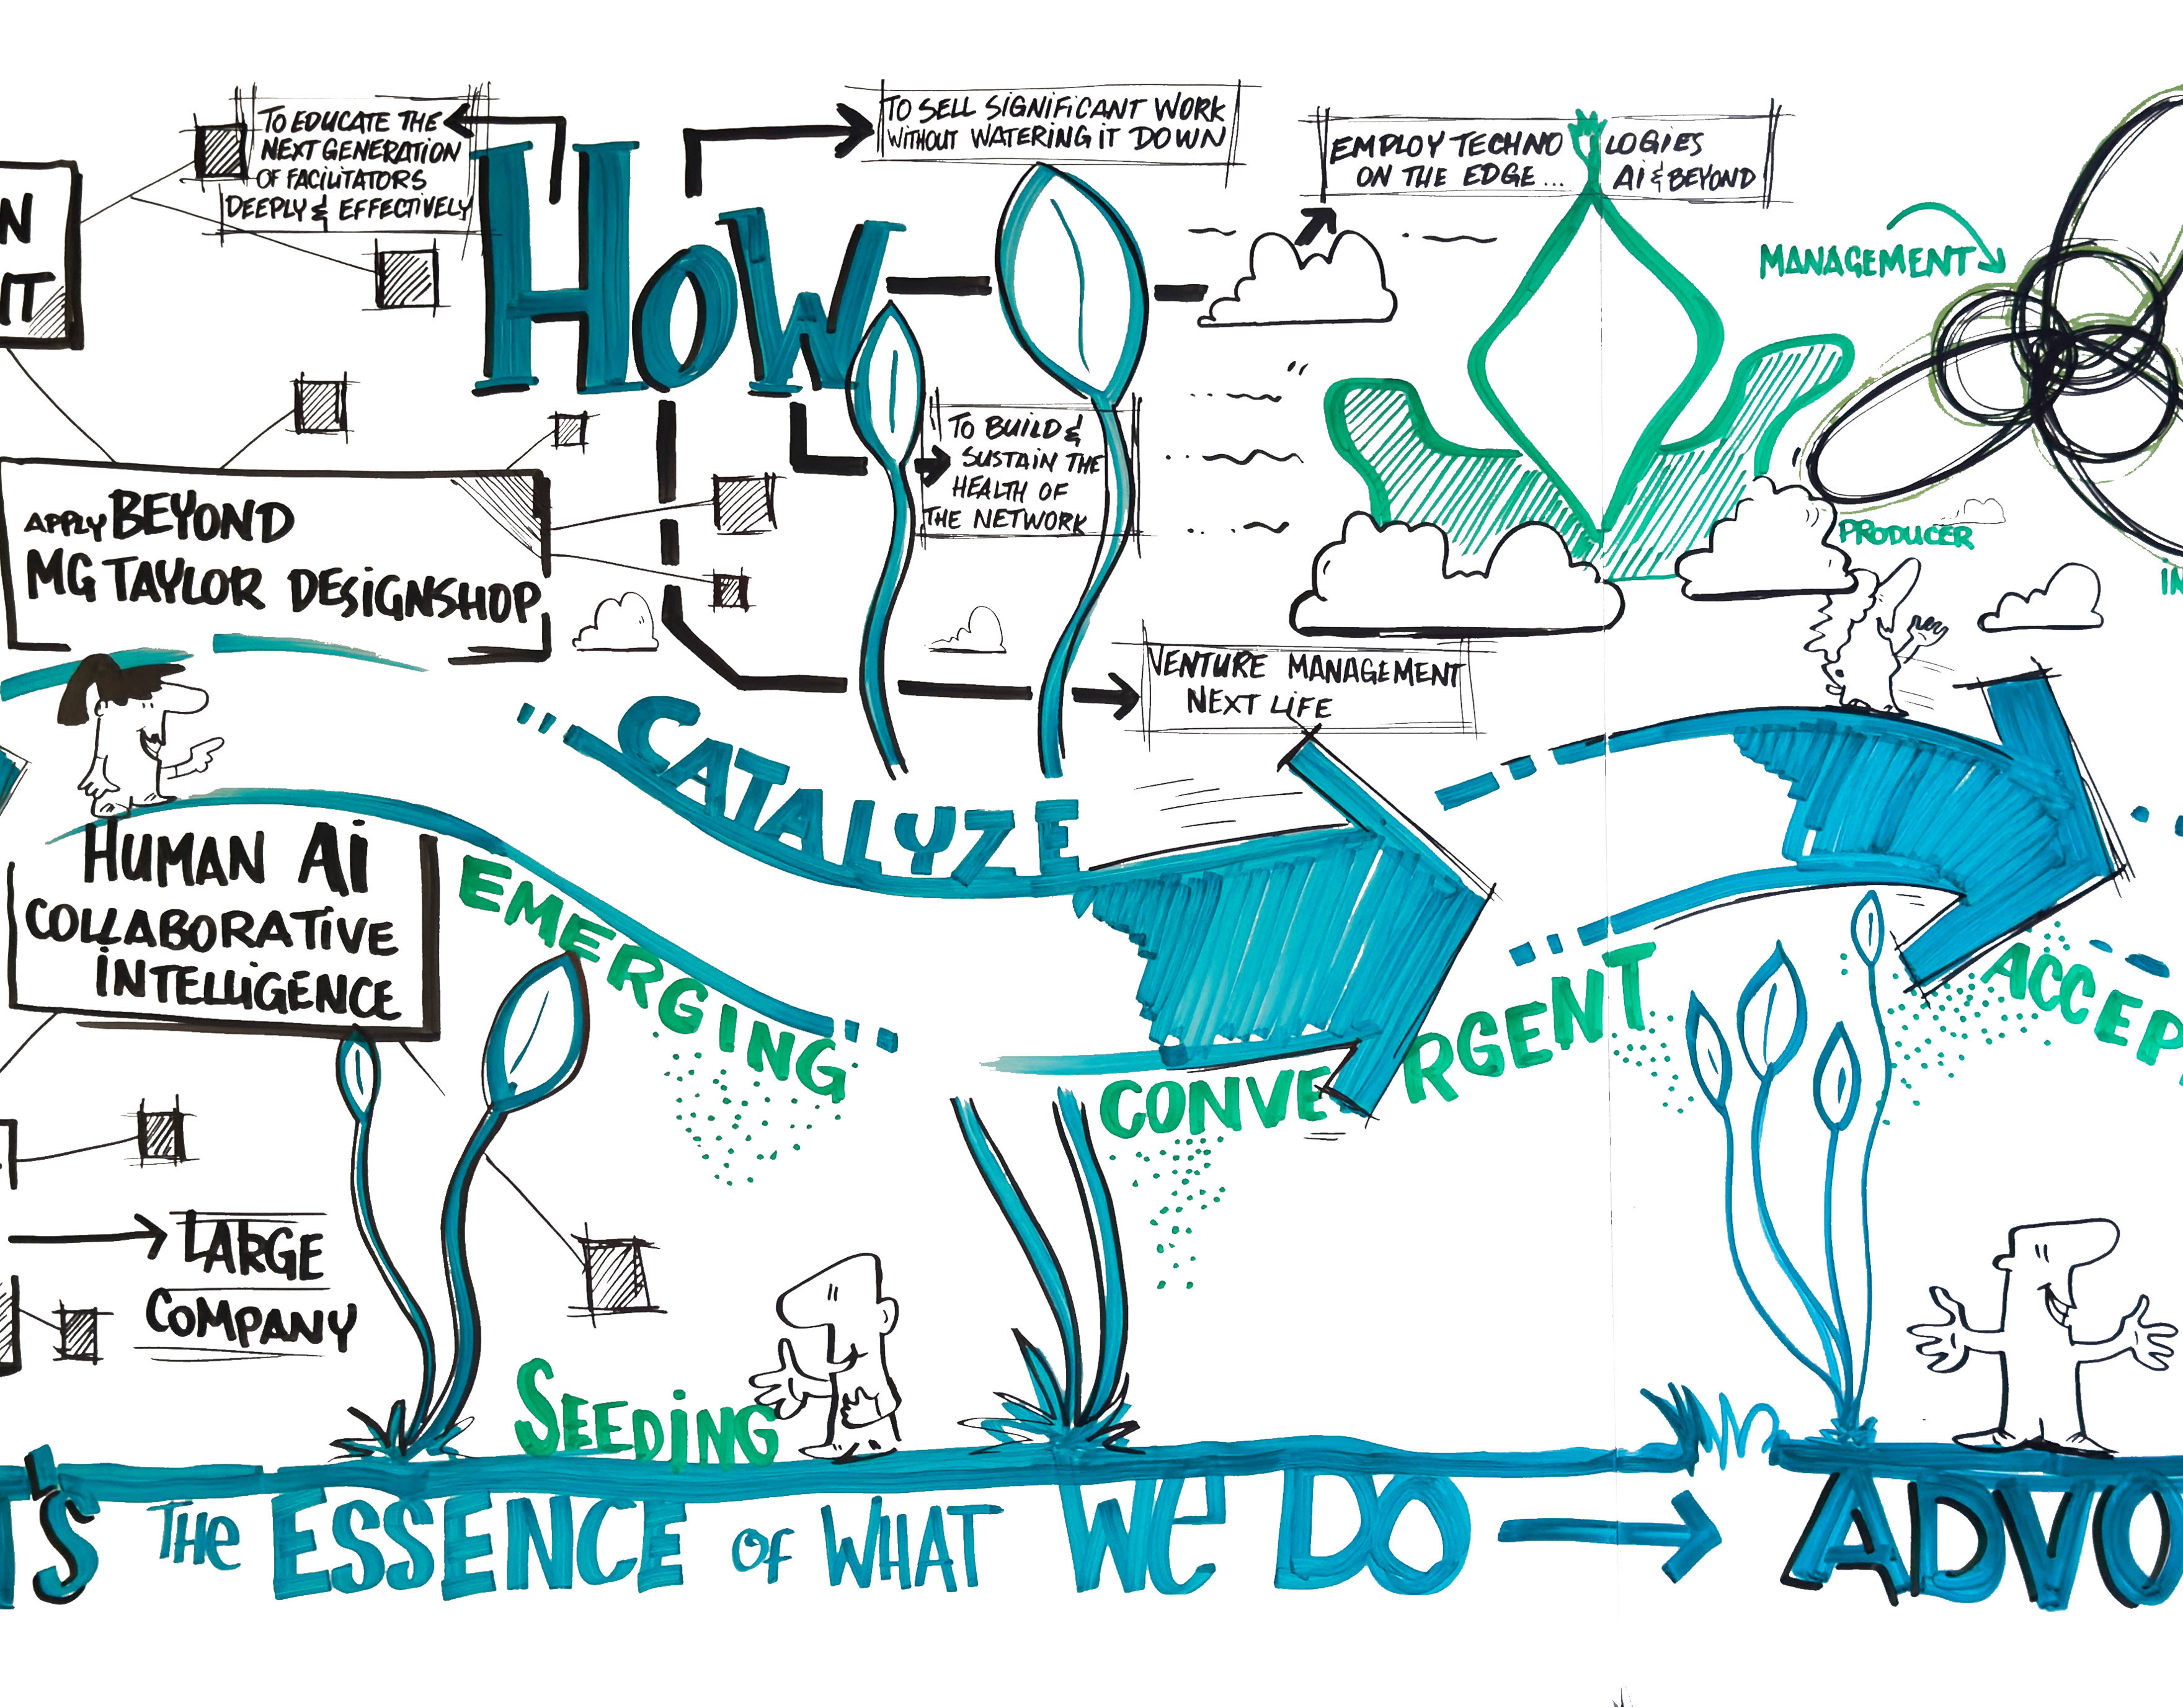 N
IT
TO EDUCATE THE
NEXT GENERATION
OF FACILITATORS
DEEPLY & EFFECTIVELY
HOW
TO SELL SIGNIFICANT WORK
WITHOUT WATERING IT DOWN
EMPLOY TECHNOLOGIES
ON THE EDGE... AI & BEYOND
MANAGEMENT
TO BUILD &
SUSTAIN THE
HEALTH OF
THE NETWORK
APPLY BEYOND
MG TAYLOR DESIGNSHOP
PRODUCER
IN
VENTURE MANAGEMENT
NEXT LIFE
CATALYZE
HUMAN AI
COLLABORATIVE
INTELLIGENCE
EMERGING
CONVERGENT
ACCEP
LARGE
COMPANY
SEEDING
T'S THE ESSENCE OF WHAT WE DO
ADVO